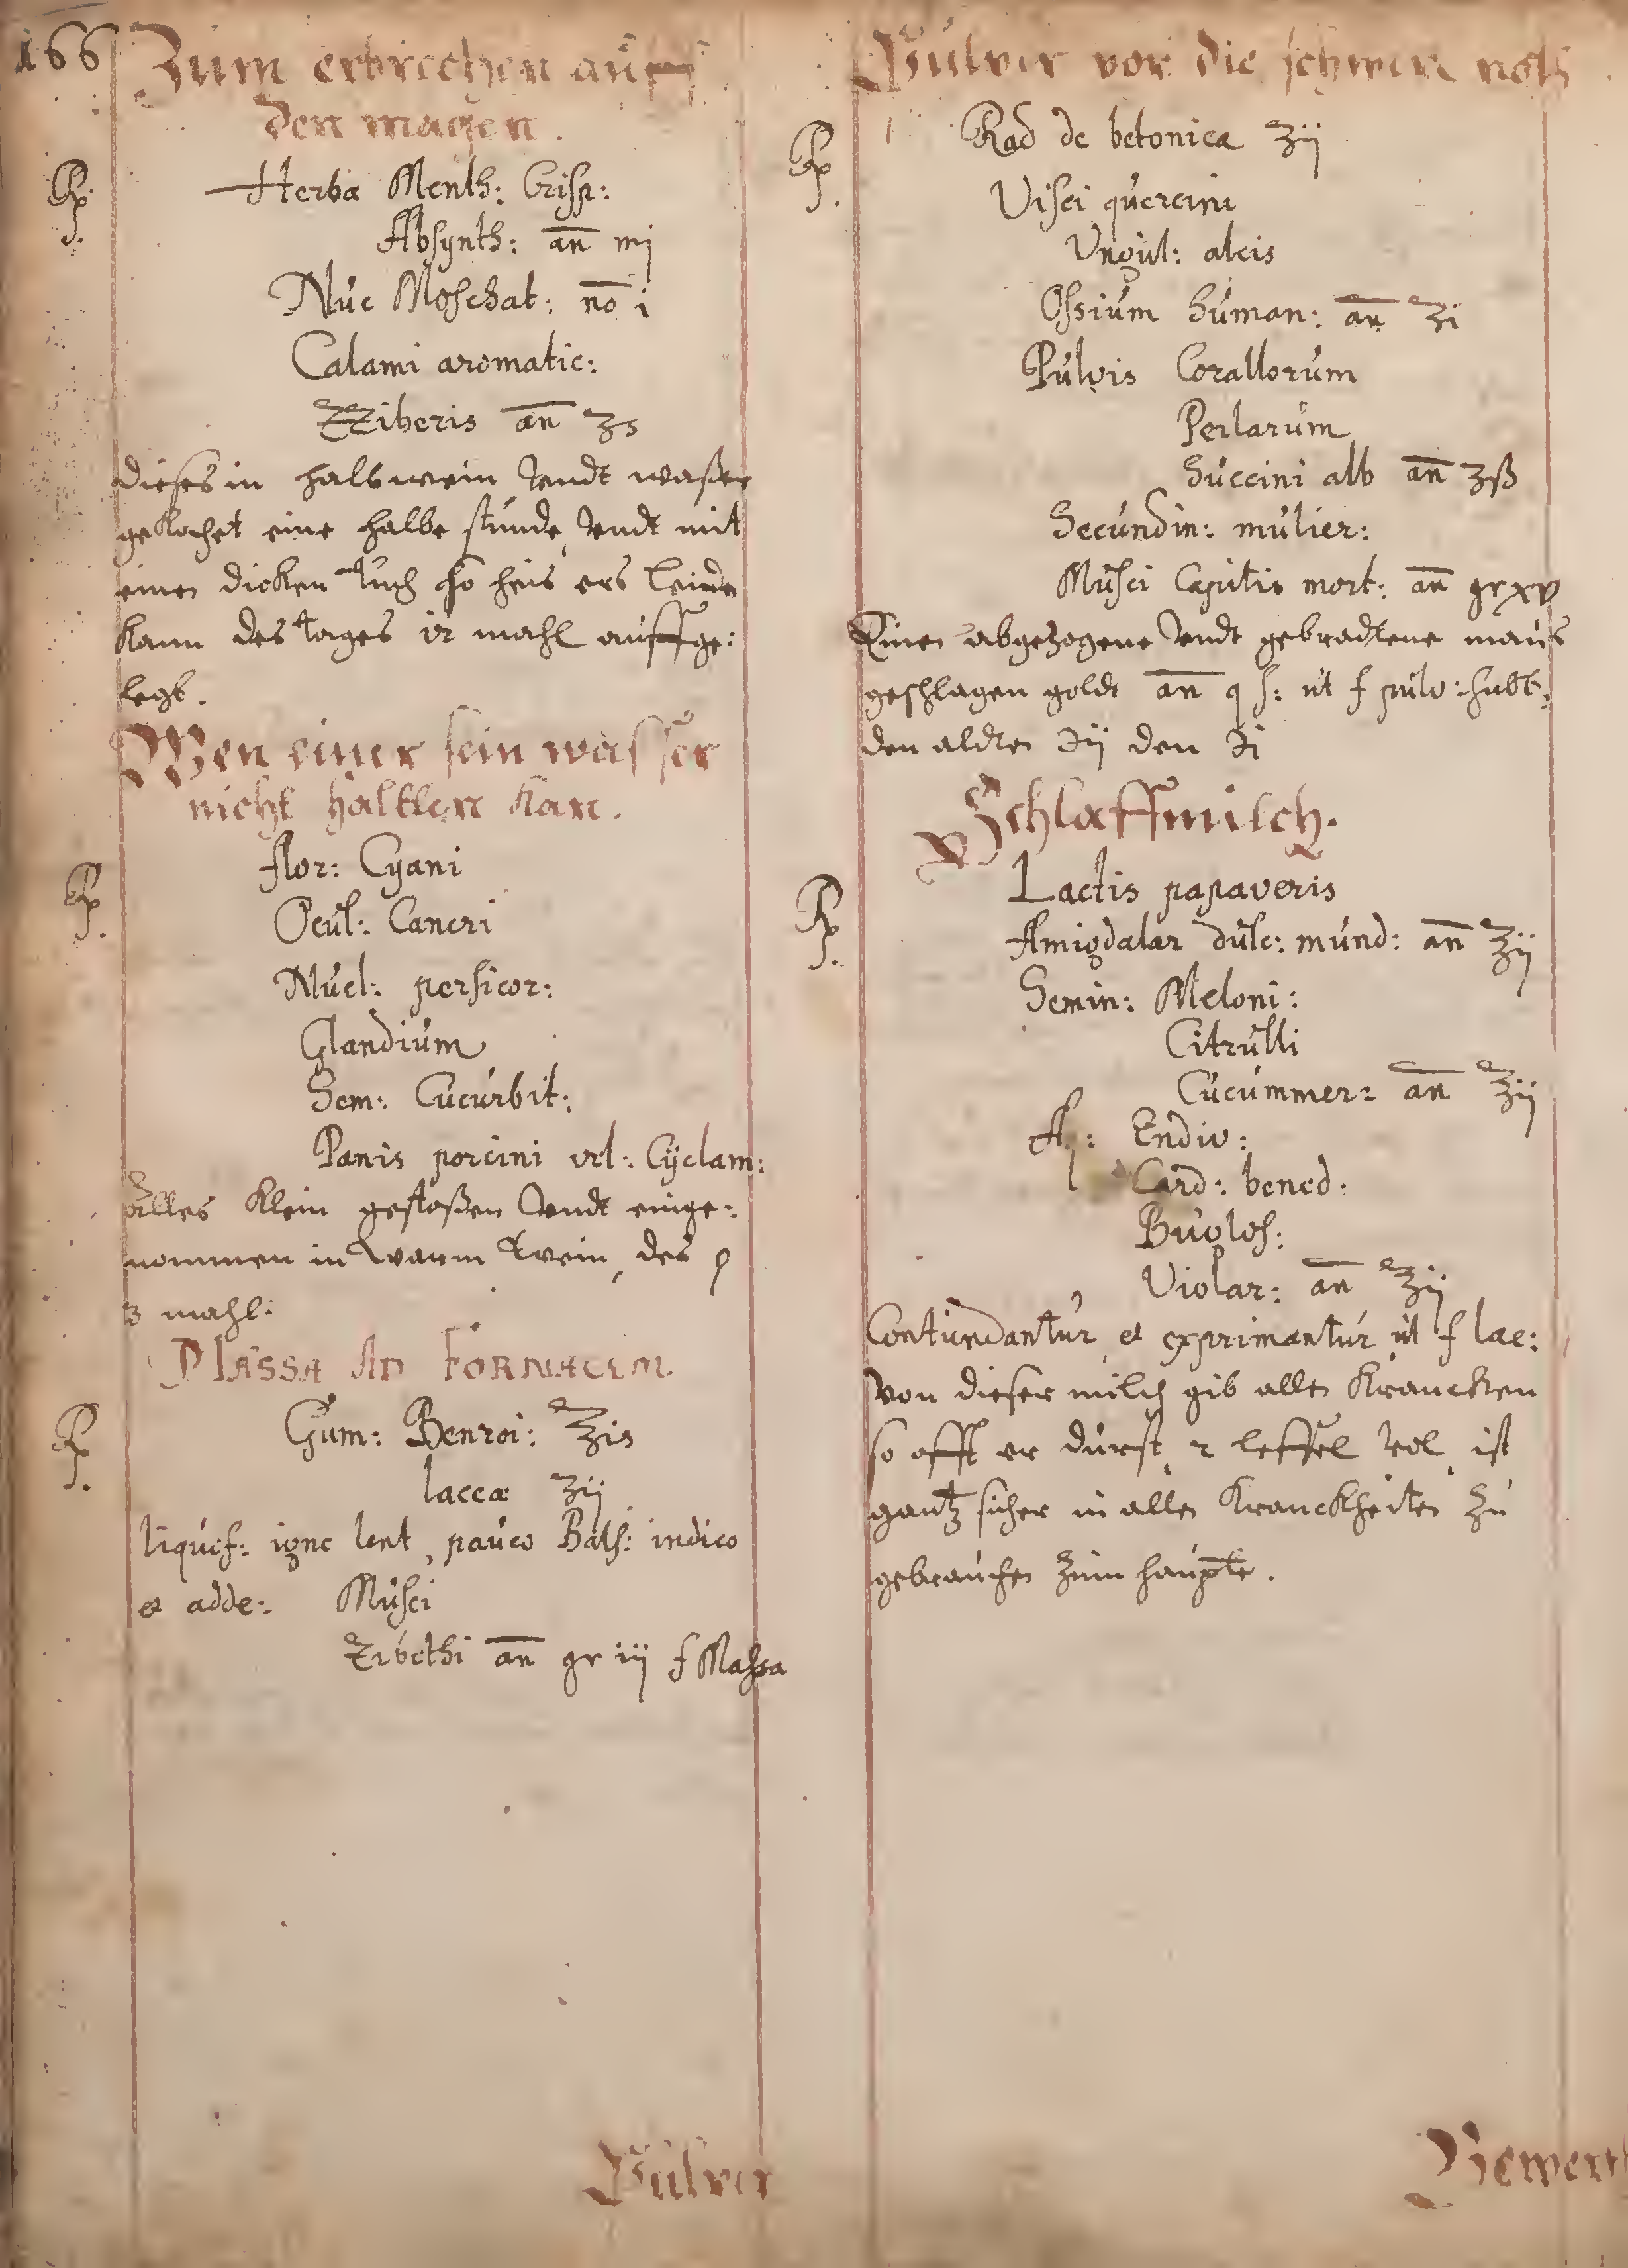 166
Zum erbrechen auff
den magen.
Rp. Herba Menth: Crisp:
Absynth: an mj
Nuc Moschat: no i
Calami aromatic:
Zziberis an ʒs
dieses in halb wein vndt waßer
gekochet eine halbe stunde, vndt mit
einen dicken tuch so heis ers leiden
kann des tages ir mahl auffge:
legt.
Wen einer sein wasser
nicht haltten kan.
Rp. flor: Cyani
Ocul: Cancri
Nucl: persicor:
Glandium
Sem: Cucurbit:
Panis porcini vel: Cÿclam:
alles klein gestoßen vndt einge:
nommen in warm wein, des
3 mahl:
MASSA AD FORNACEM.
Rp. Gum: Benzoi: ℥is
lacca ʒij
liquef: igne lent, pauco Bals: indico
et adde: Musci
Zibethi an gr iij f Massa
Pulver
Pulver vor die schwere noth
Rp. Rad de betonica ʒij
Visci quercini
Ungul: alcis
Ossium human: an ʒi
Pulvis Corallorum
Perlarum
Succini alb an ʒß
Secundin: mulier:
Musci Capitis mort: an gr xv
Einen abgezogene vndt gebradtene maus
geschlagen goldt an q s: ut f pulv: subt:
den aldten ℈ij den ℈i
Schlaffmilch.
Rp. Lactis papaveris
Amigdalar dulc: mund: an ℥ij
Semin: Meloni:
Citrulli
Cucummer: an ℥ij
Aq: Endiv:
Card: bened:
Buglos:
Violar: an ℥ij
Contundantur, et exprimantur, ut f lac:
von dieser milch gib allen Krancken
so offt er durst, 2 leffel vol, ist
gantz sicher in allen Kranckheiten zu
gebrauchen zum haupte.